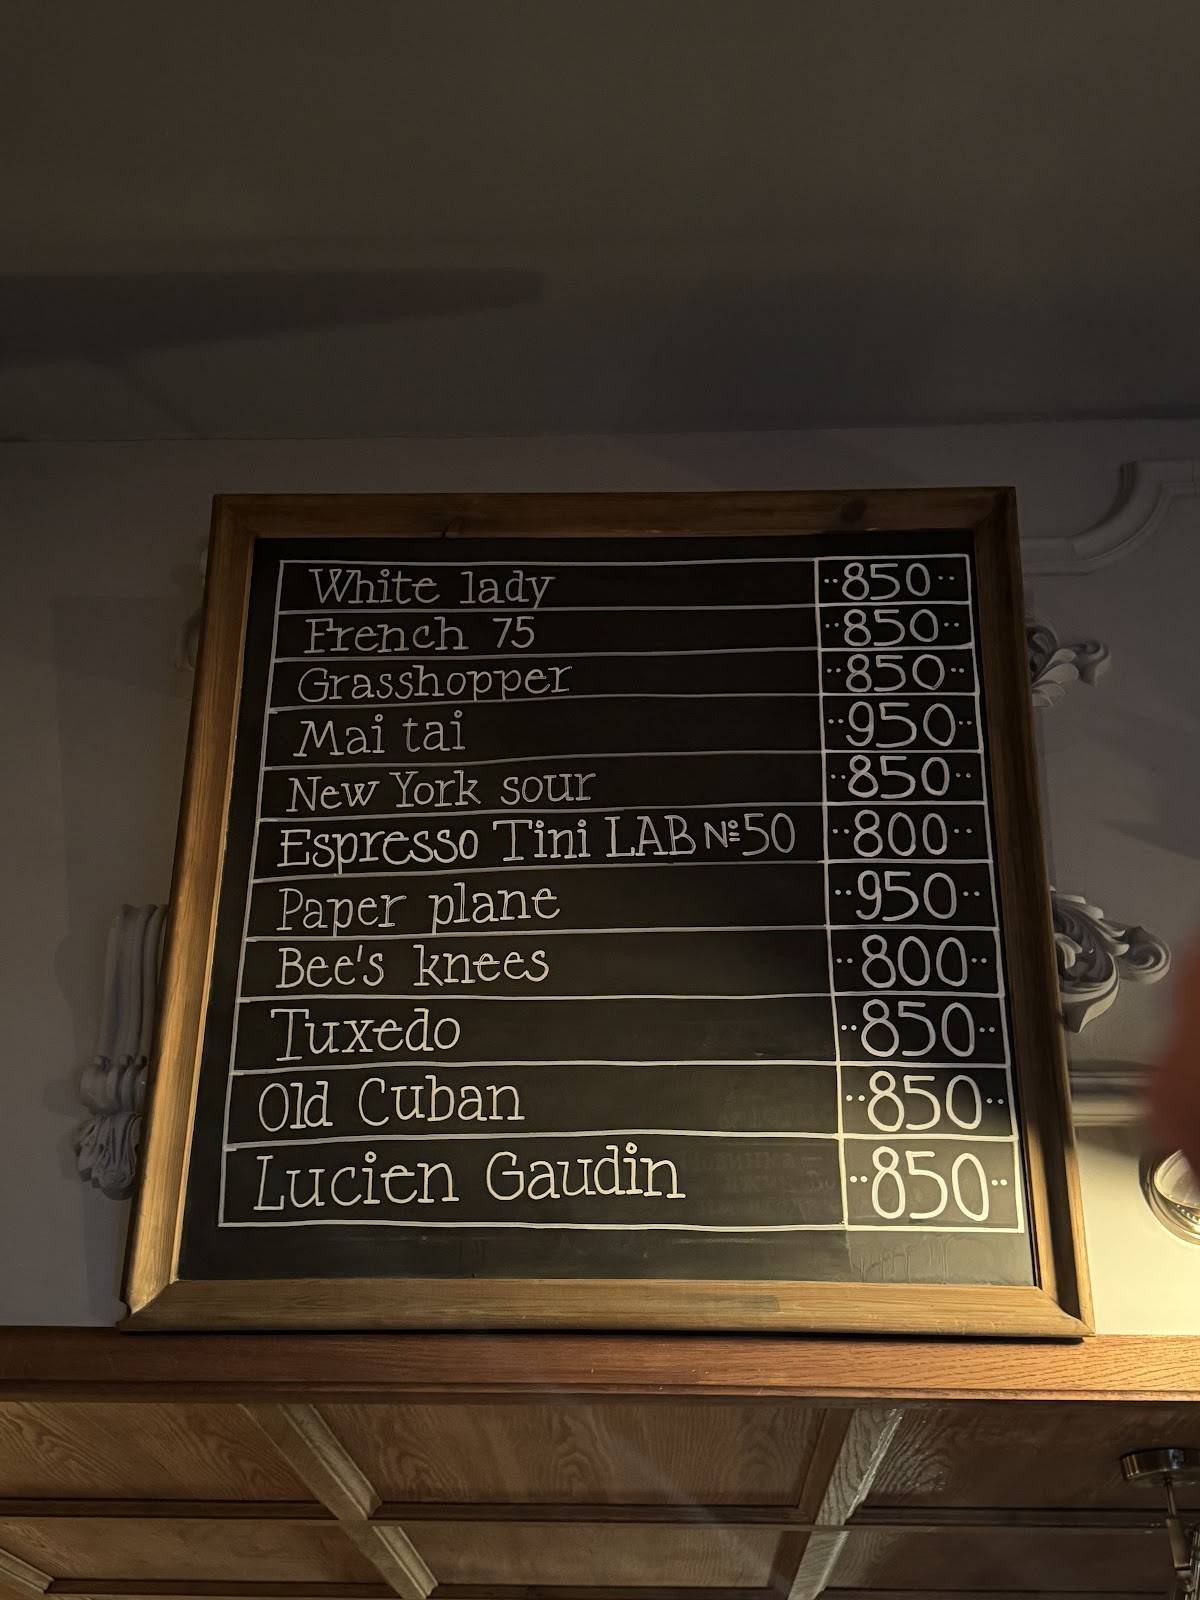 White lady ··850··
French 75 ··850··
Grasshopper ··850··
Mai tai ··950··
New York sour ··850··
Espresso Tini LAB №50 ··800··
Paper plane ··950··
Bee's knees ··800··
Tuxedo ··850··
Old Cuban ··850··
Lucien Gaudin ··850··